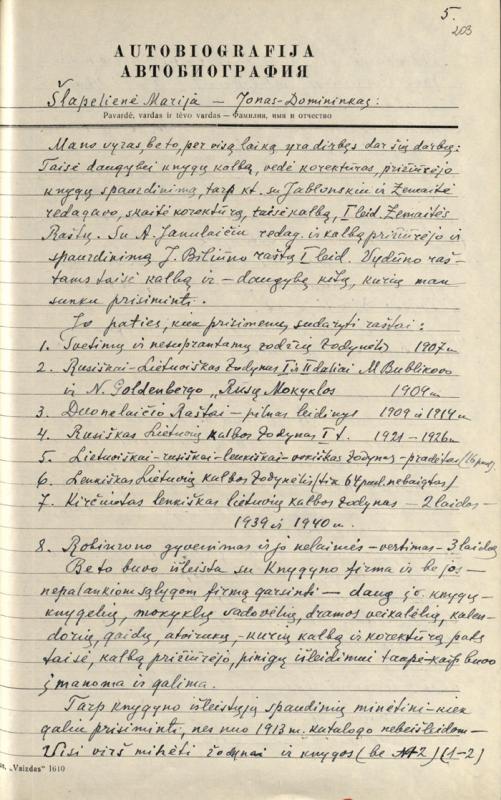 5.
203
AUTOBIOGRAFIJA
АВТОБИОГРАФИЯ
Šlapelienė Marija – Jonas-Domininkas:
Pavardė, vardas ir tėvo vardas — Фамилия, имя и отчество
Mano vyras, be to, per visą laiką yra dirbęs dar šių darbų:
Taisė daugybei knygų kalbą, vedė korektūras, prižiūrėjo
knygų spausdinimą, tarp kt. su Jablonskiu ir Žemaitė
redagavo, skaitė korektūrą, taisė kalbą, I leid. Žemaitės
Raštų. Su A. Janulaičiu redag. ir kalbą prižiūrėjo ir
spausdinimą J. Biliūno raštų I leid. Vydūno raš-
tams taisė kalbą ir – daugybę kitų, kurių man
sunku prisiminti.
Jo paties, kiek prisimenu, sudaryti raštai:
1. Svetimų ir nesuprantamų žodžių žodynėlis 1907 m
2. Rusiškai-Lietuviškas žodynas I ir II daliai M Bublikovo
ir N. Goldenbergo „Rusų Mokyklos 1909 m
3. Duonelaičio Raštai – pilnas leidinys 1909 ir 1914 m
4. Rusiškas Lietuvių kalbos žodynas I t. 1921 – 1926 m
5. Lietuviškai-rusiškai-lenkiškai-vokiškas žodynas – pradėtas (16 pusl.)
6. Lenkiškas Lietuvių kalbos žodynėlis (tik 64 pusl. nebaigtas)
7. Kirčiuotas lenkiškas lietuvių kalbos žodynas – 2 laidos –
1939 ir 1940 m.
8. Robinzono gyvenimas ir jo nelaimės – vertimas – 3 laidos
Be to buvo išleista su Knygyno firma ir be jos –
nepalankiom sąlygom firmą garsinti – daug įv. knygų –
knygelių, mokyklų vadovėlių, dramos veikalėlių, kalen-
dorių, gaidų, atvirukų – kurių kalbą ir korektūrą pats
taisė, kalbą prižiūrėjo, pinigų išleidimui taupė kaip buvo
įmanoma ir galima.
Tarp knygyno išleistųjų spaudinių minėtini – kiek
galiu prisiminti, nes nuo 1913 m. katalogo nebeišleidom –
Visi virš minėti žodynai ir knygos (be 2) (1–2)
„Vaizdas" 1610